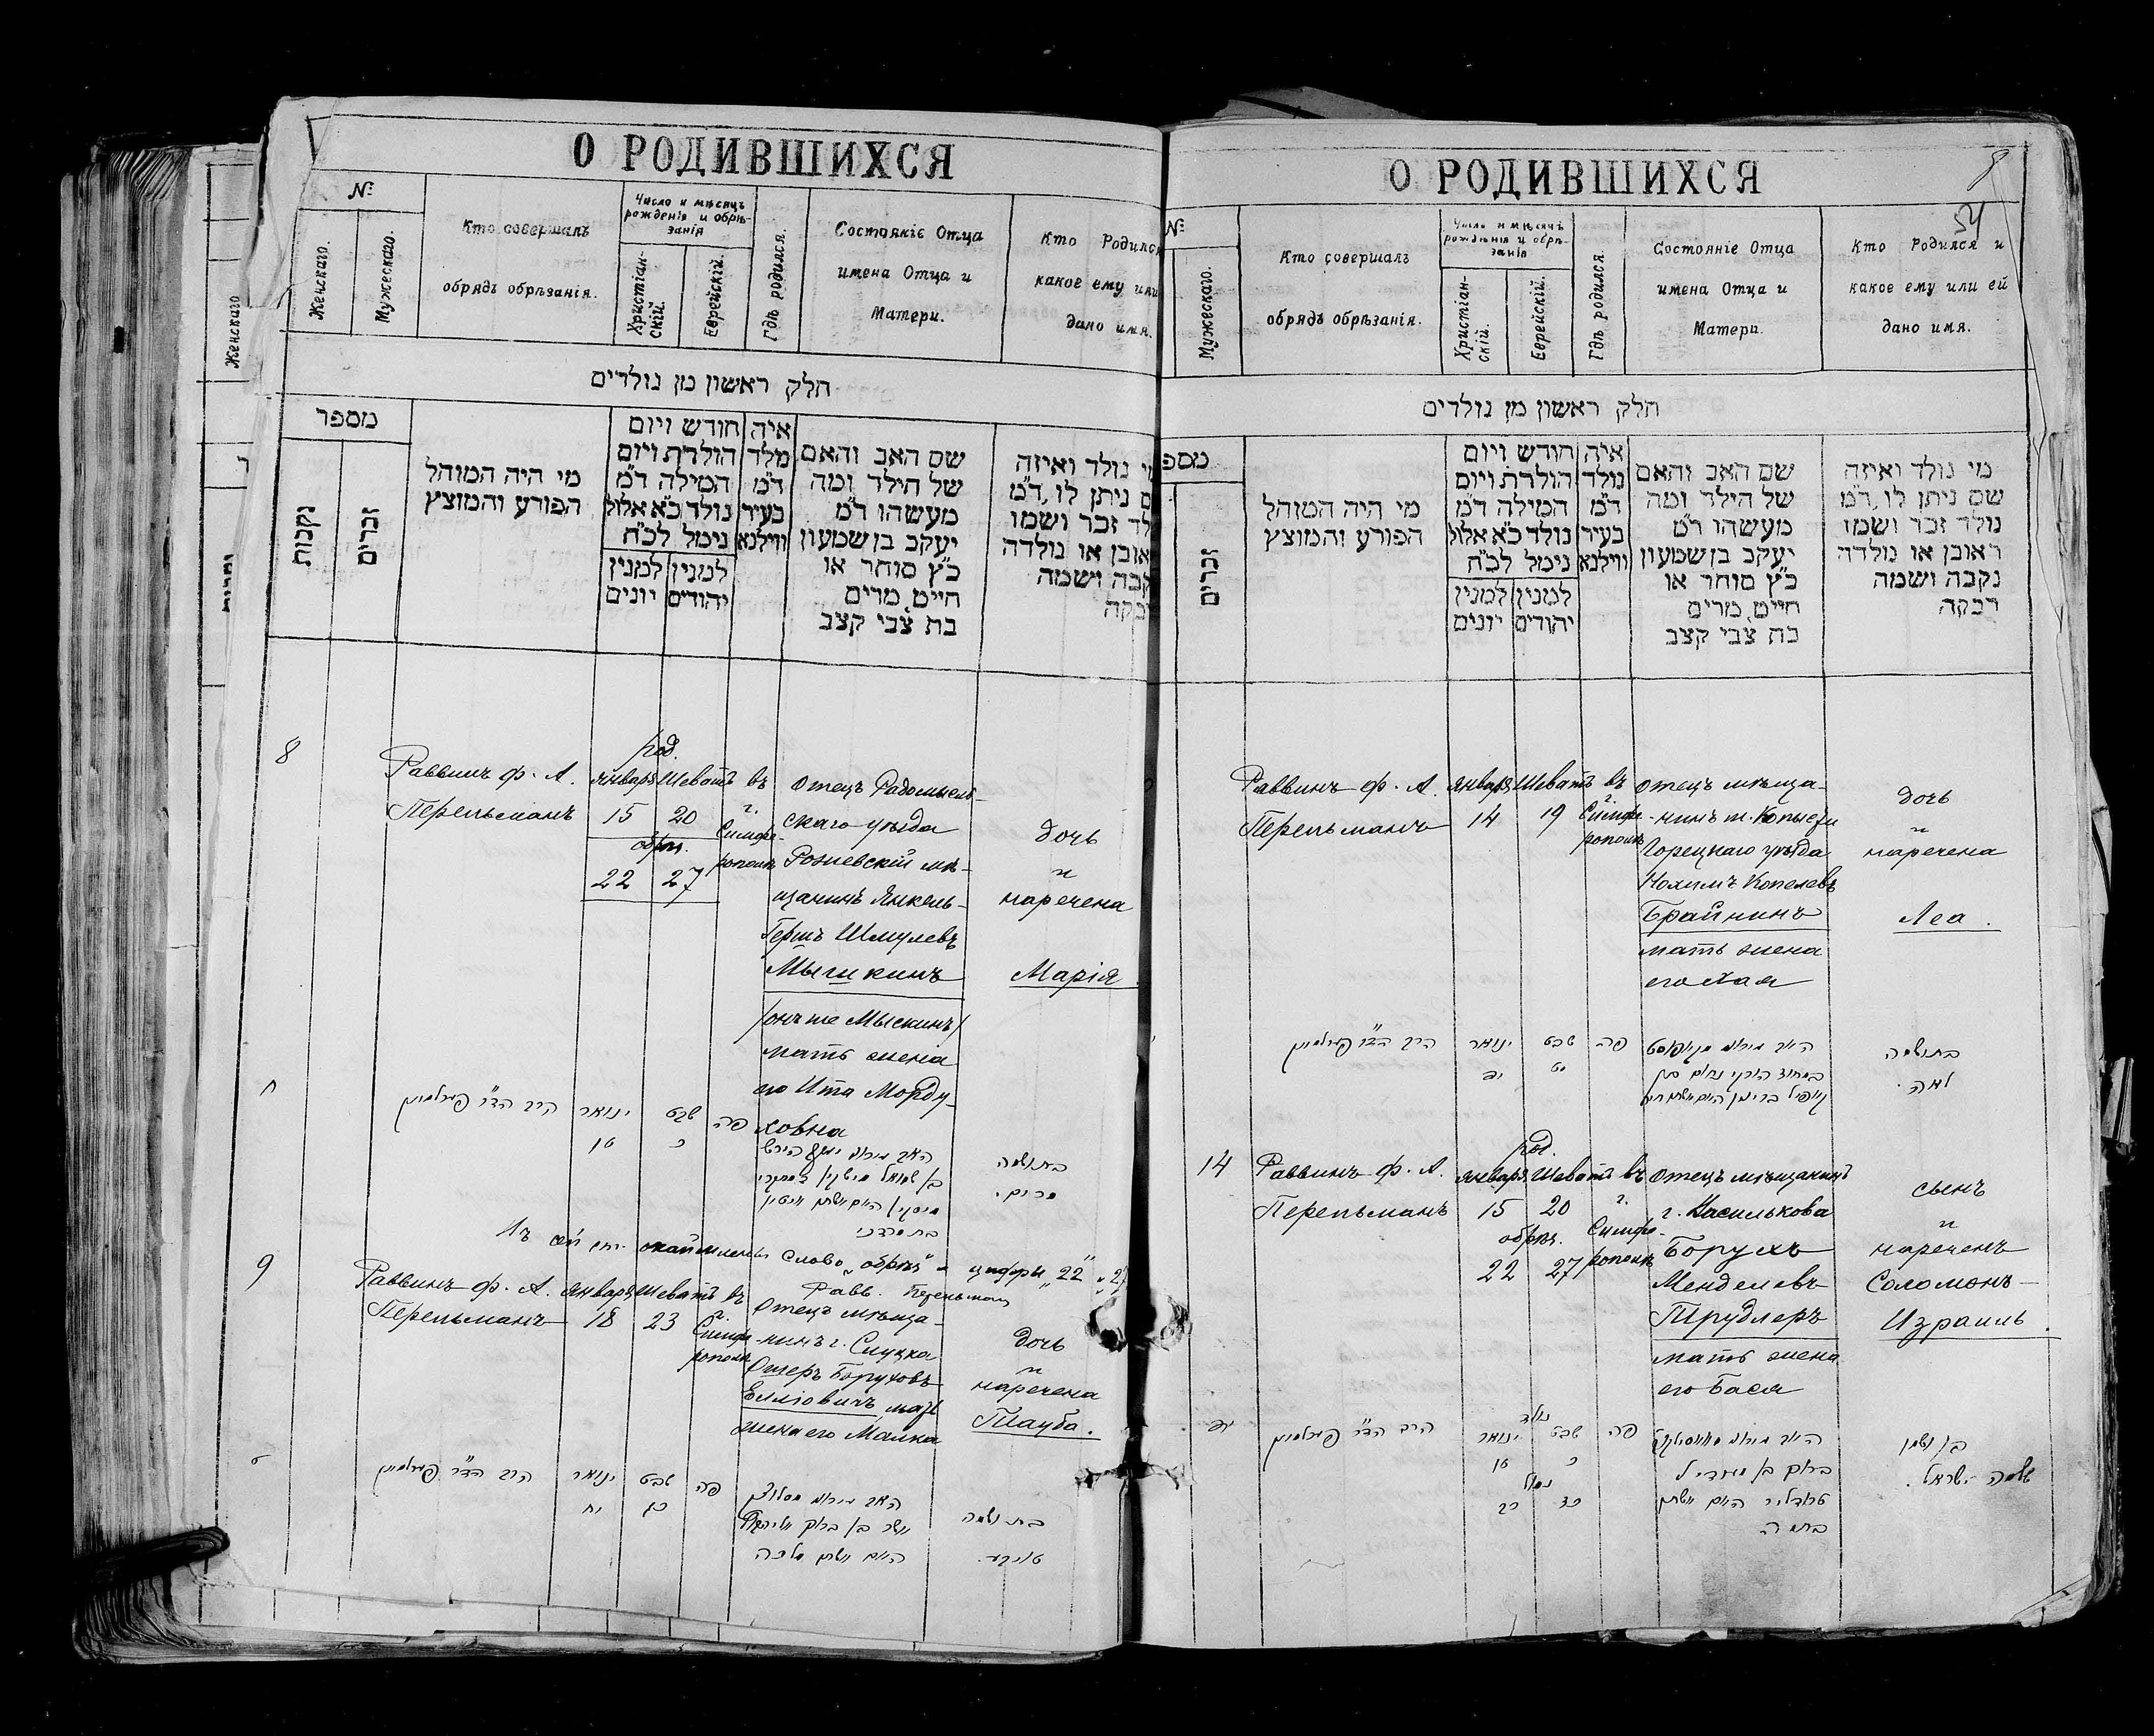 О РОДИВШИХСЯ
№
Женскаго.
Мужескаго.
Кто совершалъ
обрядъ обрѣзанія.
Число и мѣсяцъ
рожденія и обрѣ-
занія
Христіан-
скій.
Еврейскій.
Гдѣ родился.
Состояніе Отца
имена Отца и
Матери.
Кто Родился
какое ему или
дано имя.
חלק ראשון מן נולדים
מספר
נקבות
זכרים
מי היה המוהל
הפורע והמוצץ
חודש ויום
הולדת ויום
המילה ד״מ
נולד כ״א אלול
נימל לכ״ח
למנין למנין
יהודים יונים
איה
מלד
ד״מ
בעיר
ווילנא
שם האב והאם
של הילד ומה
מעשהו ד״מ
יעקב בן שמעון
כ״ץ סוחר או
חייט, מרים
בת צבי קצב
מי נולד ואיזה
ם ניתן לו, ד״מ
לד זכר ושמו
אובן או נולדה
קבה ושמה
בקה
8
Раввинъ ф. А.
Перельманъ
род.
Января Шеватъ
15 20
обрѣз.
22 27
въ
г.
Симфе-
рополѣ
Отецъ Радомысль-
скаго уѣзда
мѣ-
щанинъ Янкель-
Гершъ Шмулевъ
Мышкинъ
/онъ же Мыскинъ/
мать жена
его Ита Морду-
ховна
дочь
и
наречена
Марія
ח
הרב הד״ר פערלמאן
ינואר
טו
שבט
כ
פה
בת ושמה
מרים.
Въ сей ст. окаймлены слово „обрѣз“ и цифры „22“ „27
Равв. Перельманъ
9
Раввинъ ф. А.
Перельманъ
Января Шеватъ
18 23
въ
г.
Симфе-
рополѣ
Отецъ мѣща-
нинъ г. Слуцка
Ошеръ Боруховъ
мать
жена его Малка
дочь
и
наречена
Тауба.
ט
הרב הד״ר פערלמאן
ינואר
יח
שבט
כג
פה
בת ושמה
טויבע.
О РОДИВШИХСЯ
9
54
№
Мужескаго.
Кто совершалъ
обрядъ обрѣзанія.
Число и мѣсяцъ
рожденія и обрѣ-
занія
Христіан-
скій.
Еврейскій.
Гдѣ родился.
Состояніе Отца
имена Отца и
Матери.
Кто Родился и
какое ему или ей
дано имя.
חלק ראשון מן נולדים
מספ
זכרים
מי היה המוהל
הפורע והמוצץ
חודש ויום
הולדת ויום
המילה ד״מ
נולד כ״א אלול
נימל לכ״ח
למנין למנין
יהודים יונים
איה
נולד
ד״מ
בעיר
ווילנא
שם האב והאם
של הילד ומה
מעשהו ד״מ
יעקב בן שמעון
כ״ץ סוחר או
חייט, מרים
בת צבי קצב
מי נולד ואיזה
שם ניתן לו, ד״מ
נולד זכר ושמו
ראובן או נולדה
נקבה ושמה
רבקה
Раввинъ ф. А.
Перельманъ
Января Шеватъ
14 19
въ
г.
Симфе-
рополѣ
Отецъ мѣща-
нинъ м. Копыси
Горецкаго уѣзда
Нохимъ Копелевъ
Брайнинъ
мать жена
его Хая
дочь
и
наречена
Леа.
הרב הד״ר פערלמאן
ינואר
יד
שבט
יט
פה
בת ושמה
לאה.
14
Раввинъ ф. А.
Перельманъ
род.
Января Шеватъ
15 20
обрѣз.
22 27
въ
г.
Симфе-
рополѣ
Отецъ мѣщанинъ
г. Василькова
Борухъ
Менделевъ
Трудлеръ
мать жена
его Бася
сынъ
и
нареченъ
Соломонъ-
Израиль.
יד
הרב הד״ר פערלמאן
נולד
ינואר
טו
שבט
כ
נמול
כב
כז
פה
בן ושמו
שלמה ישראל.